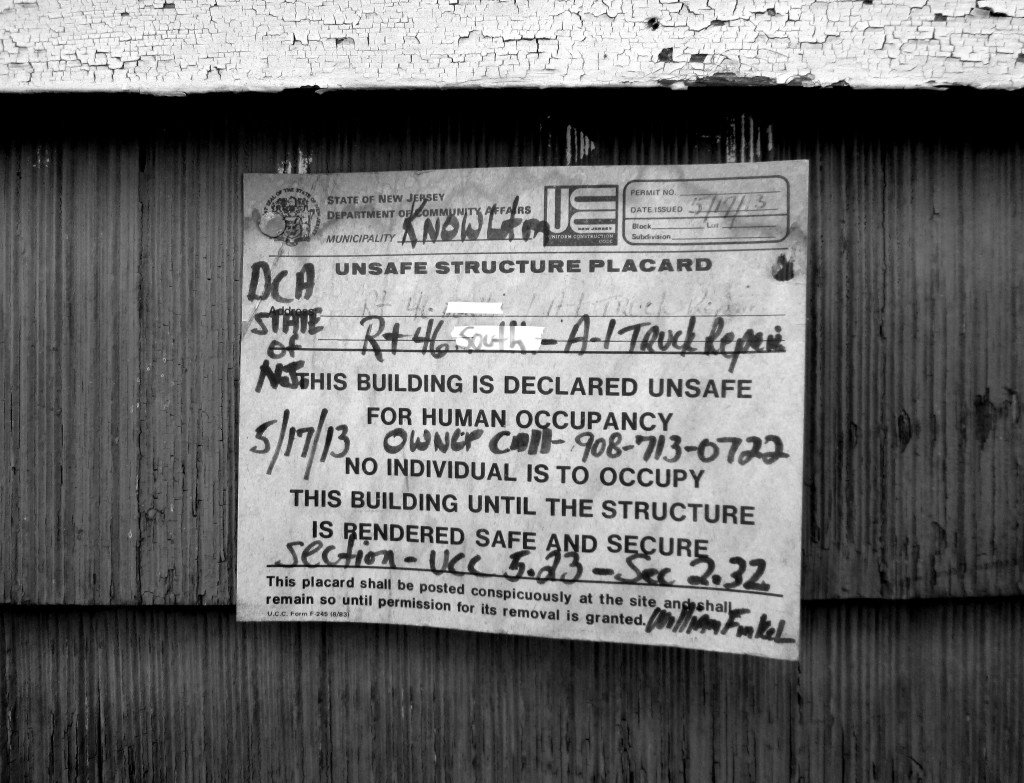 STATE OF NEW JERSEY
DEPARTMENT OF COMMUNITY AFFAIRS
MUNICIPALITY KNOWLton
UCC
NEW JERSEY
UNIFORM CONSTRUCTION CODE
PERMIT NO.
DATE ISSUED 5/17/13
Block Lot
Subdivision
UNSAFE STRUCTURE PLACARD
DCA
STATE
of
NJ
Address
Rt 46 South - A-1 Truck Repair
Rt 46 South - A-1 Truck Repair
THIS BUILDING IS DECLARED UNSAFE
FOR HUMAN OCCUPANCY
5/17/13 OWNER Call- 908-713-0722
NO INDIVIDUAL IS TO OCCUPY
THIS BUILDING UNTIL THE STRUCTURE
IS RENDERED SAFE AND SECURE
Section - UCC 5.23 - Sec 2.32
This placard shall be posted conspicuously at the site and shall
remain so until permission for its removal is granted. William Finkel
U.C.C. Form F-245 (8/83)